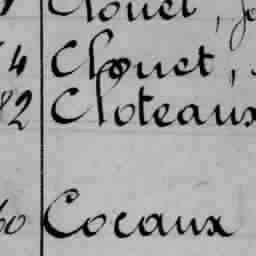 Clouet, 
4 Chouet,
82 Cloteaux
60 Cocaux